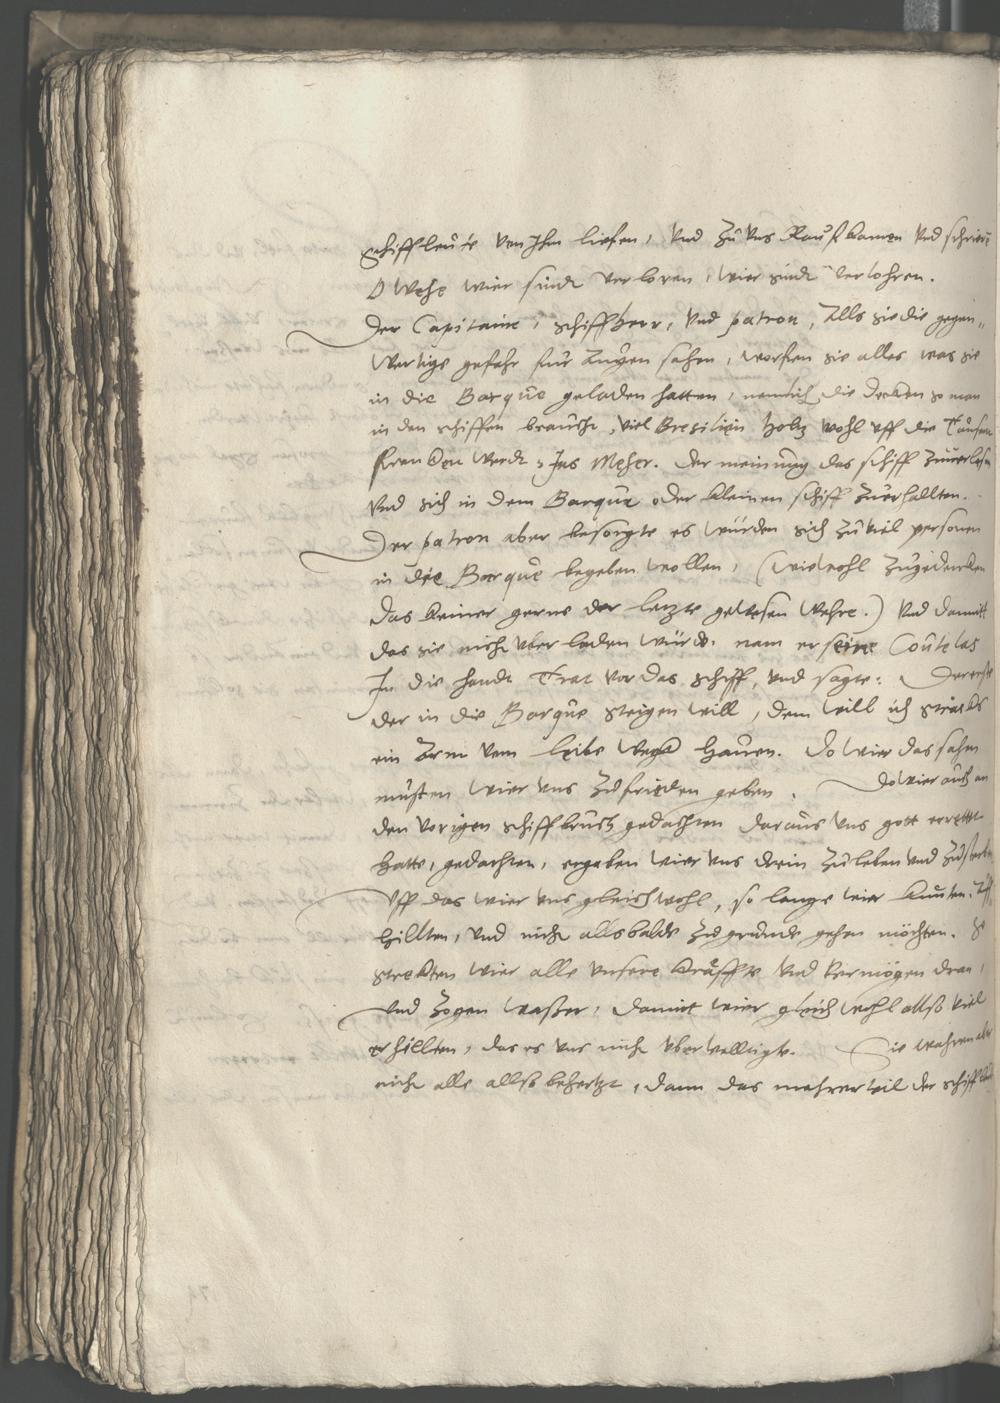 schiffleute von Jhm liefen, vnd zu vns Rauff kamen vnd schrien
O wehe wier sindt verloren, wier sindt verlohren.
Der Capitaine, schiffherr, vnd patron, Alls sie die gegen„
wertige gefahr fur Augen sahen, worffen sie alles was sie
in die Barque geladen hatten, nemlich die decken so man
in den schiffen braucht, viel Bresilien holtz wohl vff die Tausen
francken werdt, Jns Meher. der meinung das schiff zuuerlasen
vnd sich in dem Barque oder kleinen schiff zuerhallten.
Der patron aber besorgte es würden sich zu viel personen
in die Barque begeben wollen, (wiewohl zugedencken
das keiner gerne der letzte gewesen wehre.) vnd damitt
das sie nicht vberladen würde. nam er seine Coutelas
Jn die handt Trat vor das schiff, vnd sagte: Der erste
der in die Barque steigen will, dem will ich stracks
ein Arm vom leibe weg hauen. Do wier das sahen
musten wier vns zufrieden geben. Do wier auch an
den vorigen schiffbruch gedachten daraus vns gott errettet
hatte, gedachten, ergaben wier vns drein zu leben vnd zu sterben
Vff das wier vns gleichwohl, so lange wier kunten,
hillten, vnd nicht allsbalde zu grunde gehen möchten. So
streckten wier alle vnsere kräffte vnd vermögen dran,
vnd zogen waßer, damit wier gleichwohl allso viel
erhillten, das es vns nicht vberwelligte. Sie wahren aber
nicht alle allso behertzt, dann das mehrerteil der schiffleut